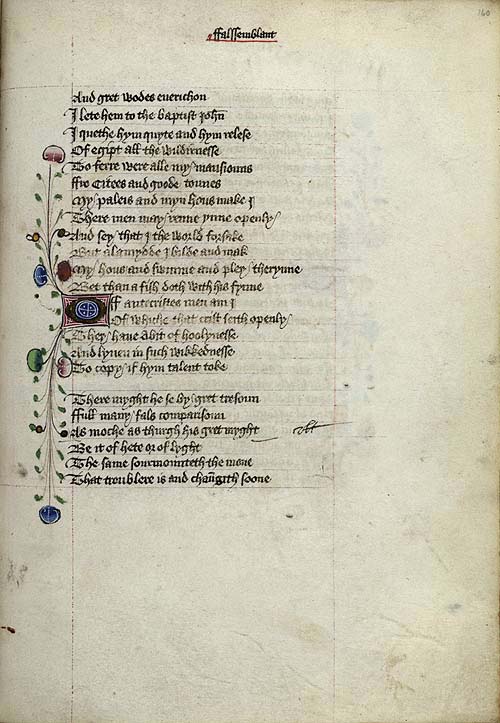 ffalssemblant
And gret wodes euerichon
I lete hem to the baptist Iohn
I quethe hym quyte and hym relese
Of egipt all the wildirnesse
To ferre were alle my mansiouns
ffro Citees and goode tounes
My paleis and myn hous make I
There men may renne ynne openly
And sey that I the world forsake
But al amydde I bilde and mak
My hous and swimme and pley therynne
Bet than a fish doth with his fynne
Off antecristes men am I
Of whiche that crist seith openly
They haue abit of hoolynesse
And lyuen in such wikkednesse
To copy if hym talent toke
There myght he se by gret tresoun
ffull many fals comparisoun
As moche as thurgh his gret myght
Be it of hete or of lyght
The sonne sourmounteth the mone
That troublere is and chaungith soone